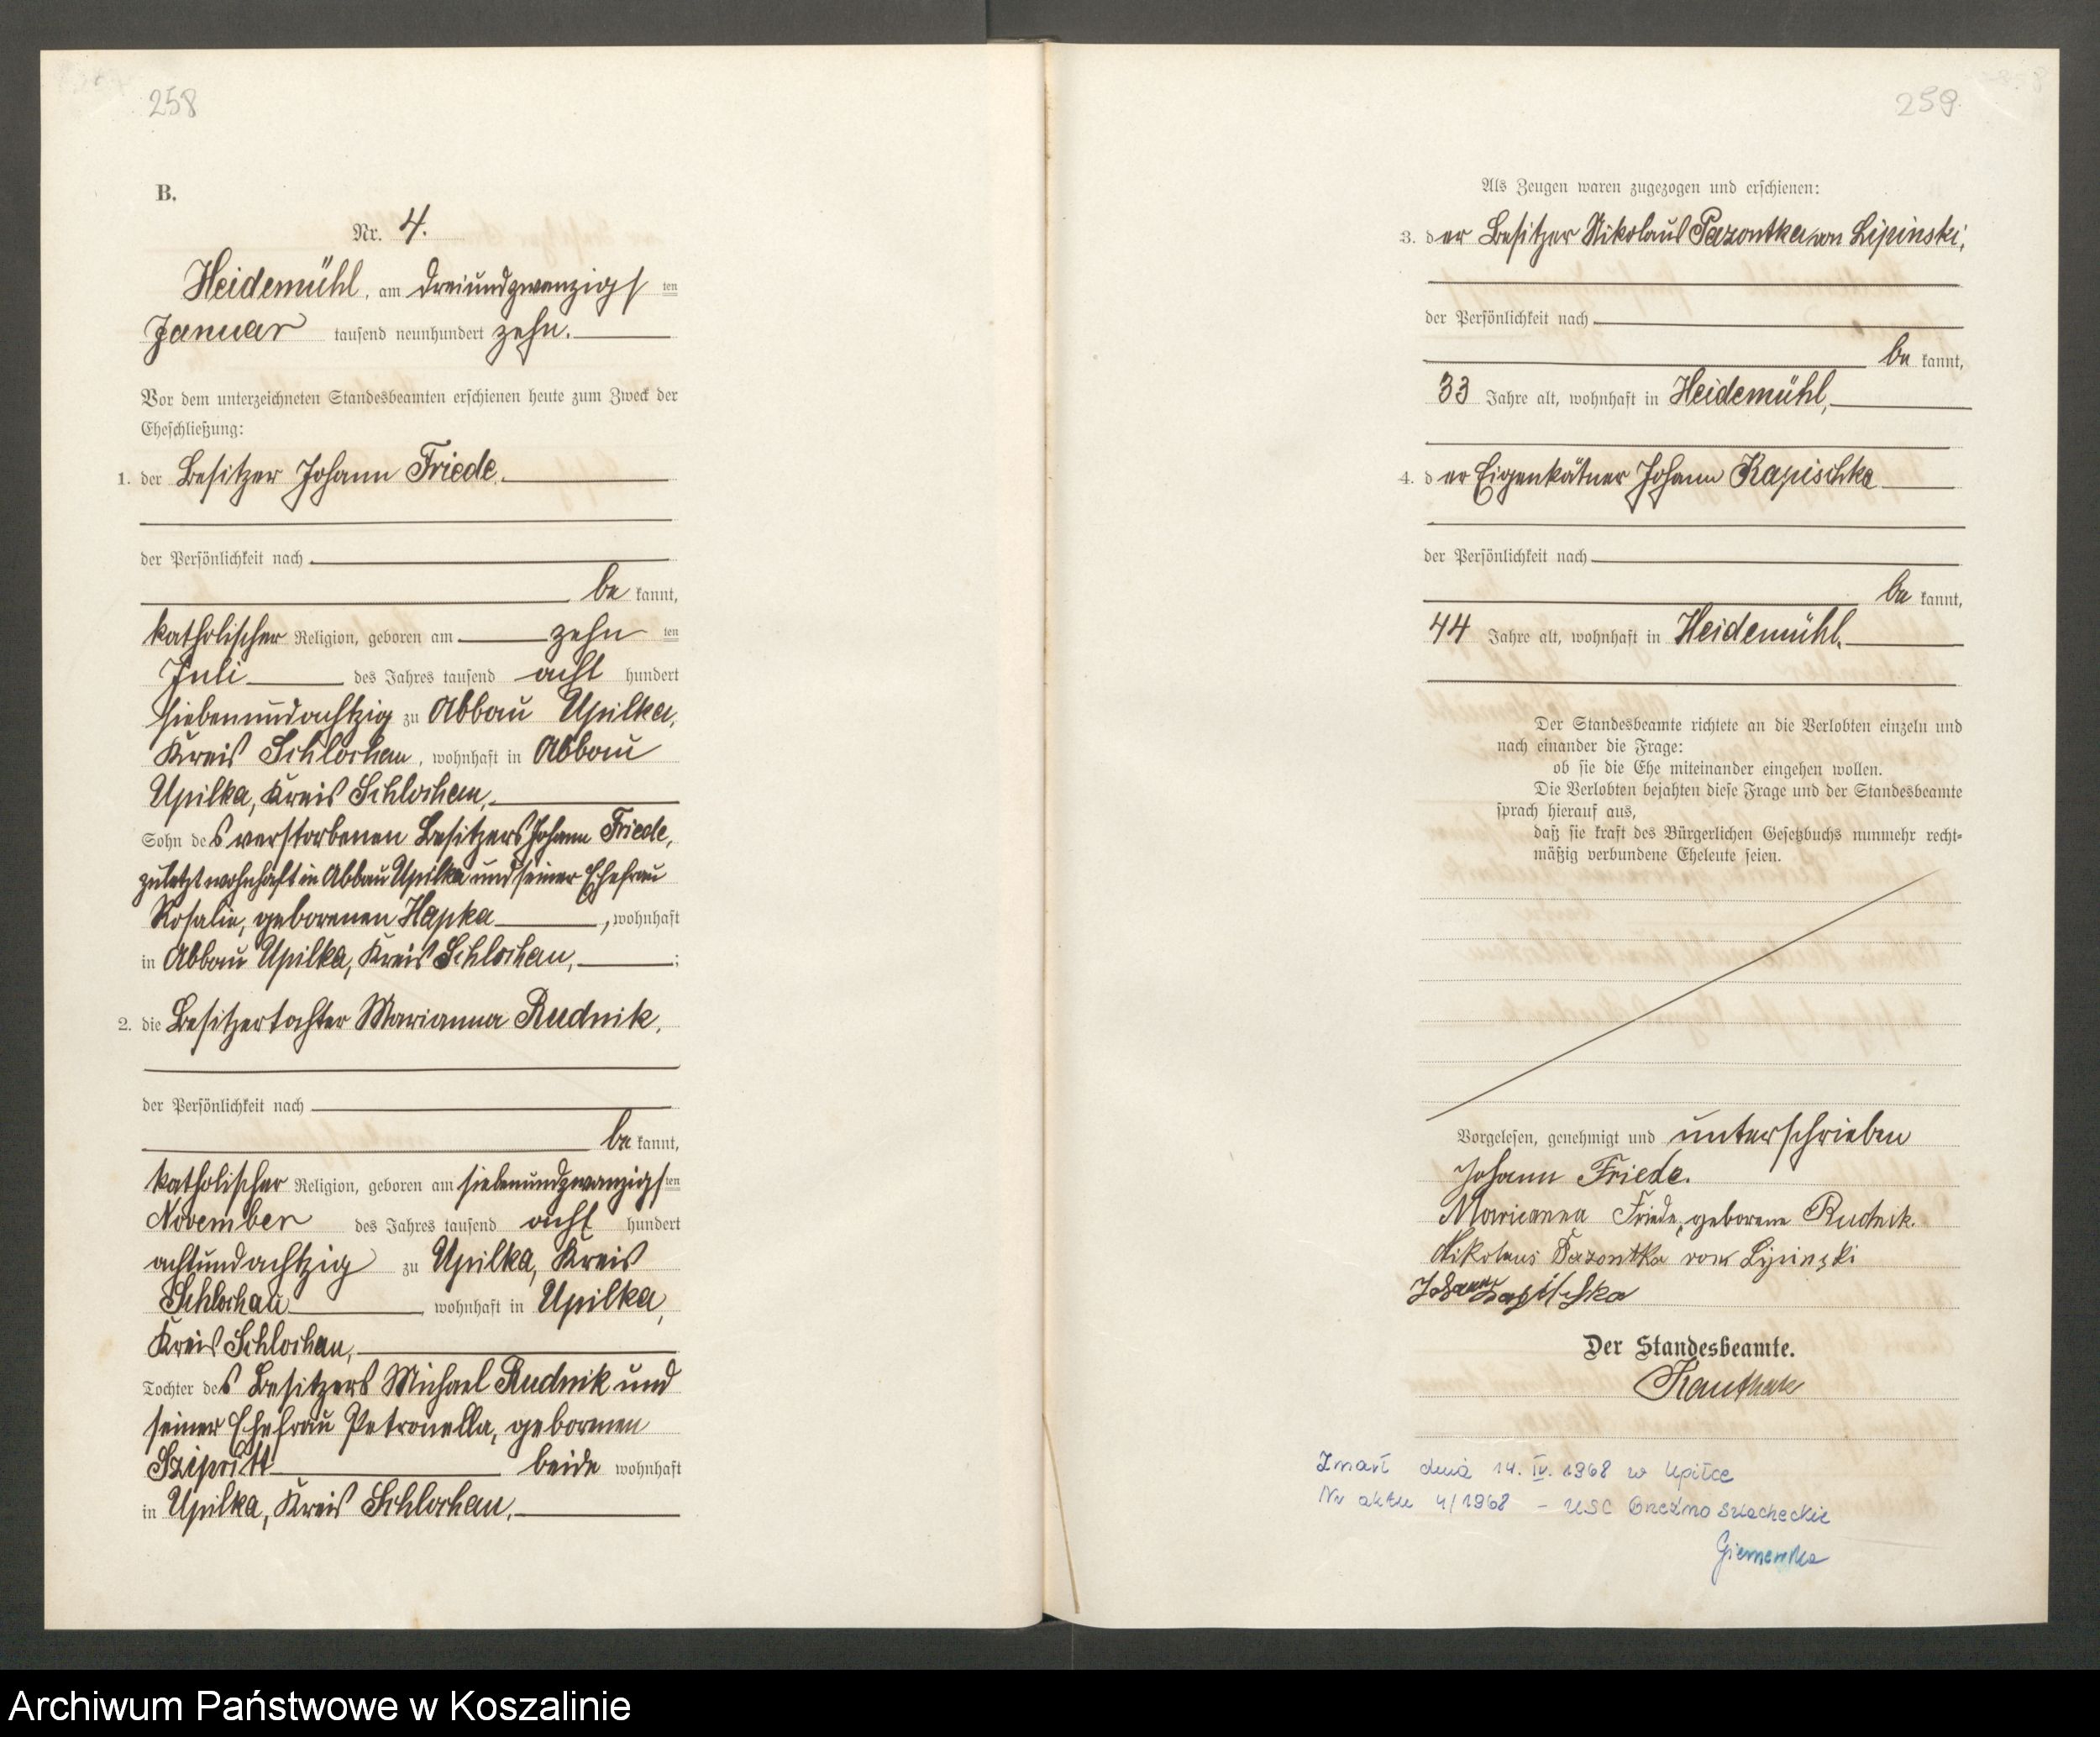 258
B.
Nr. 4.
Heidemühl, am dreiundzwanzigsten
Januar tausend neunhundert zehn.
Vor dem unterzeichneten Standesbeamten erschienen heute zum Zweck der
Eheschließung:
1. der Besitzer Johann Friede,
der Persönlichkeit nach
bekannt,
katholischer Religion, geboren am zehnten
Juli des Jahres tausend achthundert
siebenundachtzig zu Abbau Upilka,
Kreis Schlochau, wohnhaft in Abbau
Upilka, Kreis Schlochau,
Sohn des verstorbenen Besitzers Johann Friede,
zuletzt wohnhaft in Abbau Upilka und seiner Ehefrau
Rosalie, geborenen Hapka, wohnhaft
in Abbau Upilka, Kreis Schlochau, ;
2. die Besitzertochter Marianna Rudnik,
der Persönlichkeit nach
bekannt,
katholischer Religion, geboren am siebenundzwanzigsten
November des Jahres tausend achthundert
achtundachtzig zu Upilka, Kreis
Schlochau, wohnhaft in Upilka,
Kreis Schlochau,
Tochter des Besitzers Michael Rudnik und
seiner Ehefrau Petronella, geborenen
Szipritt beide wohnhaft
in Upilka, Kreis Schlochau,
259
Als Zeugen waren zugezogen und erschienen:
3. der Besitzer Nikolaus Pazontka von Lipinski,
der Persönlichkeit nach
bekannt,
33 Jahre alt, wohnhaft in Heidemühl,
4. der Eigenkätner Johann Kapischka
der Persönlichkeit nach
bekannt,
44 Jahre alt, wohnhaft in Heidemühl.
Der Standesbeamte richtete an die Verlobten einzeln und
nach einander die Frage:
ob sie die Ehe miteinander eingehen wollen.
Die Verlobten bejahten diese Frage und der Standesbeamte
sprach hierauf aus,
daß sie kraft des Bürgerlichen Gesetzbuchs nunmehr recht-
mäßig verbundene Eheleute seien.
Vorgelesen, genehmigt und unterschrieben
Johann Friede.
Marianna Friede, geborene Rudnik.
Nikolaus Pazontka von Lipinski
Johann Kapischka
Der Standesbeamte.
Zmarł dnia 14. IV. 1968 w Upiłce
Nr aktu 4/1968 – USC Brzeźno Szlacheckie
Archiwum Państwowe w Koszalinie